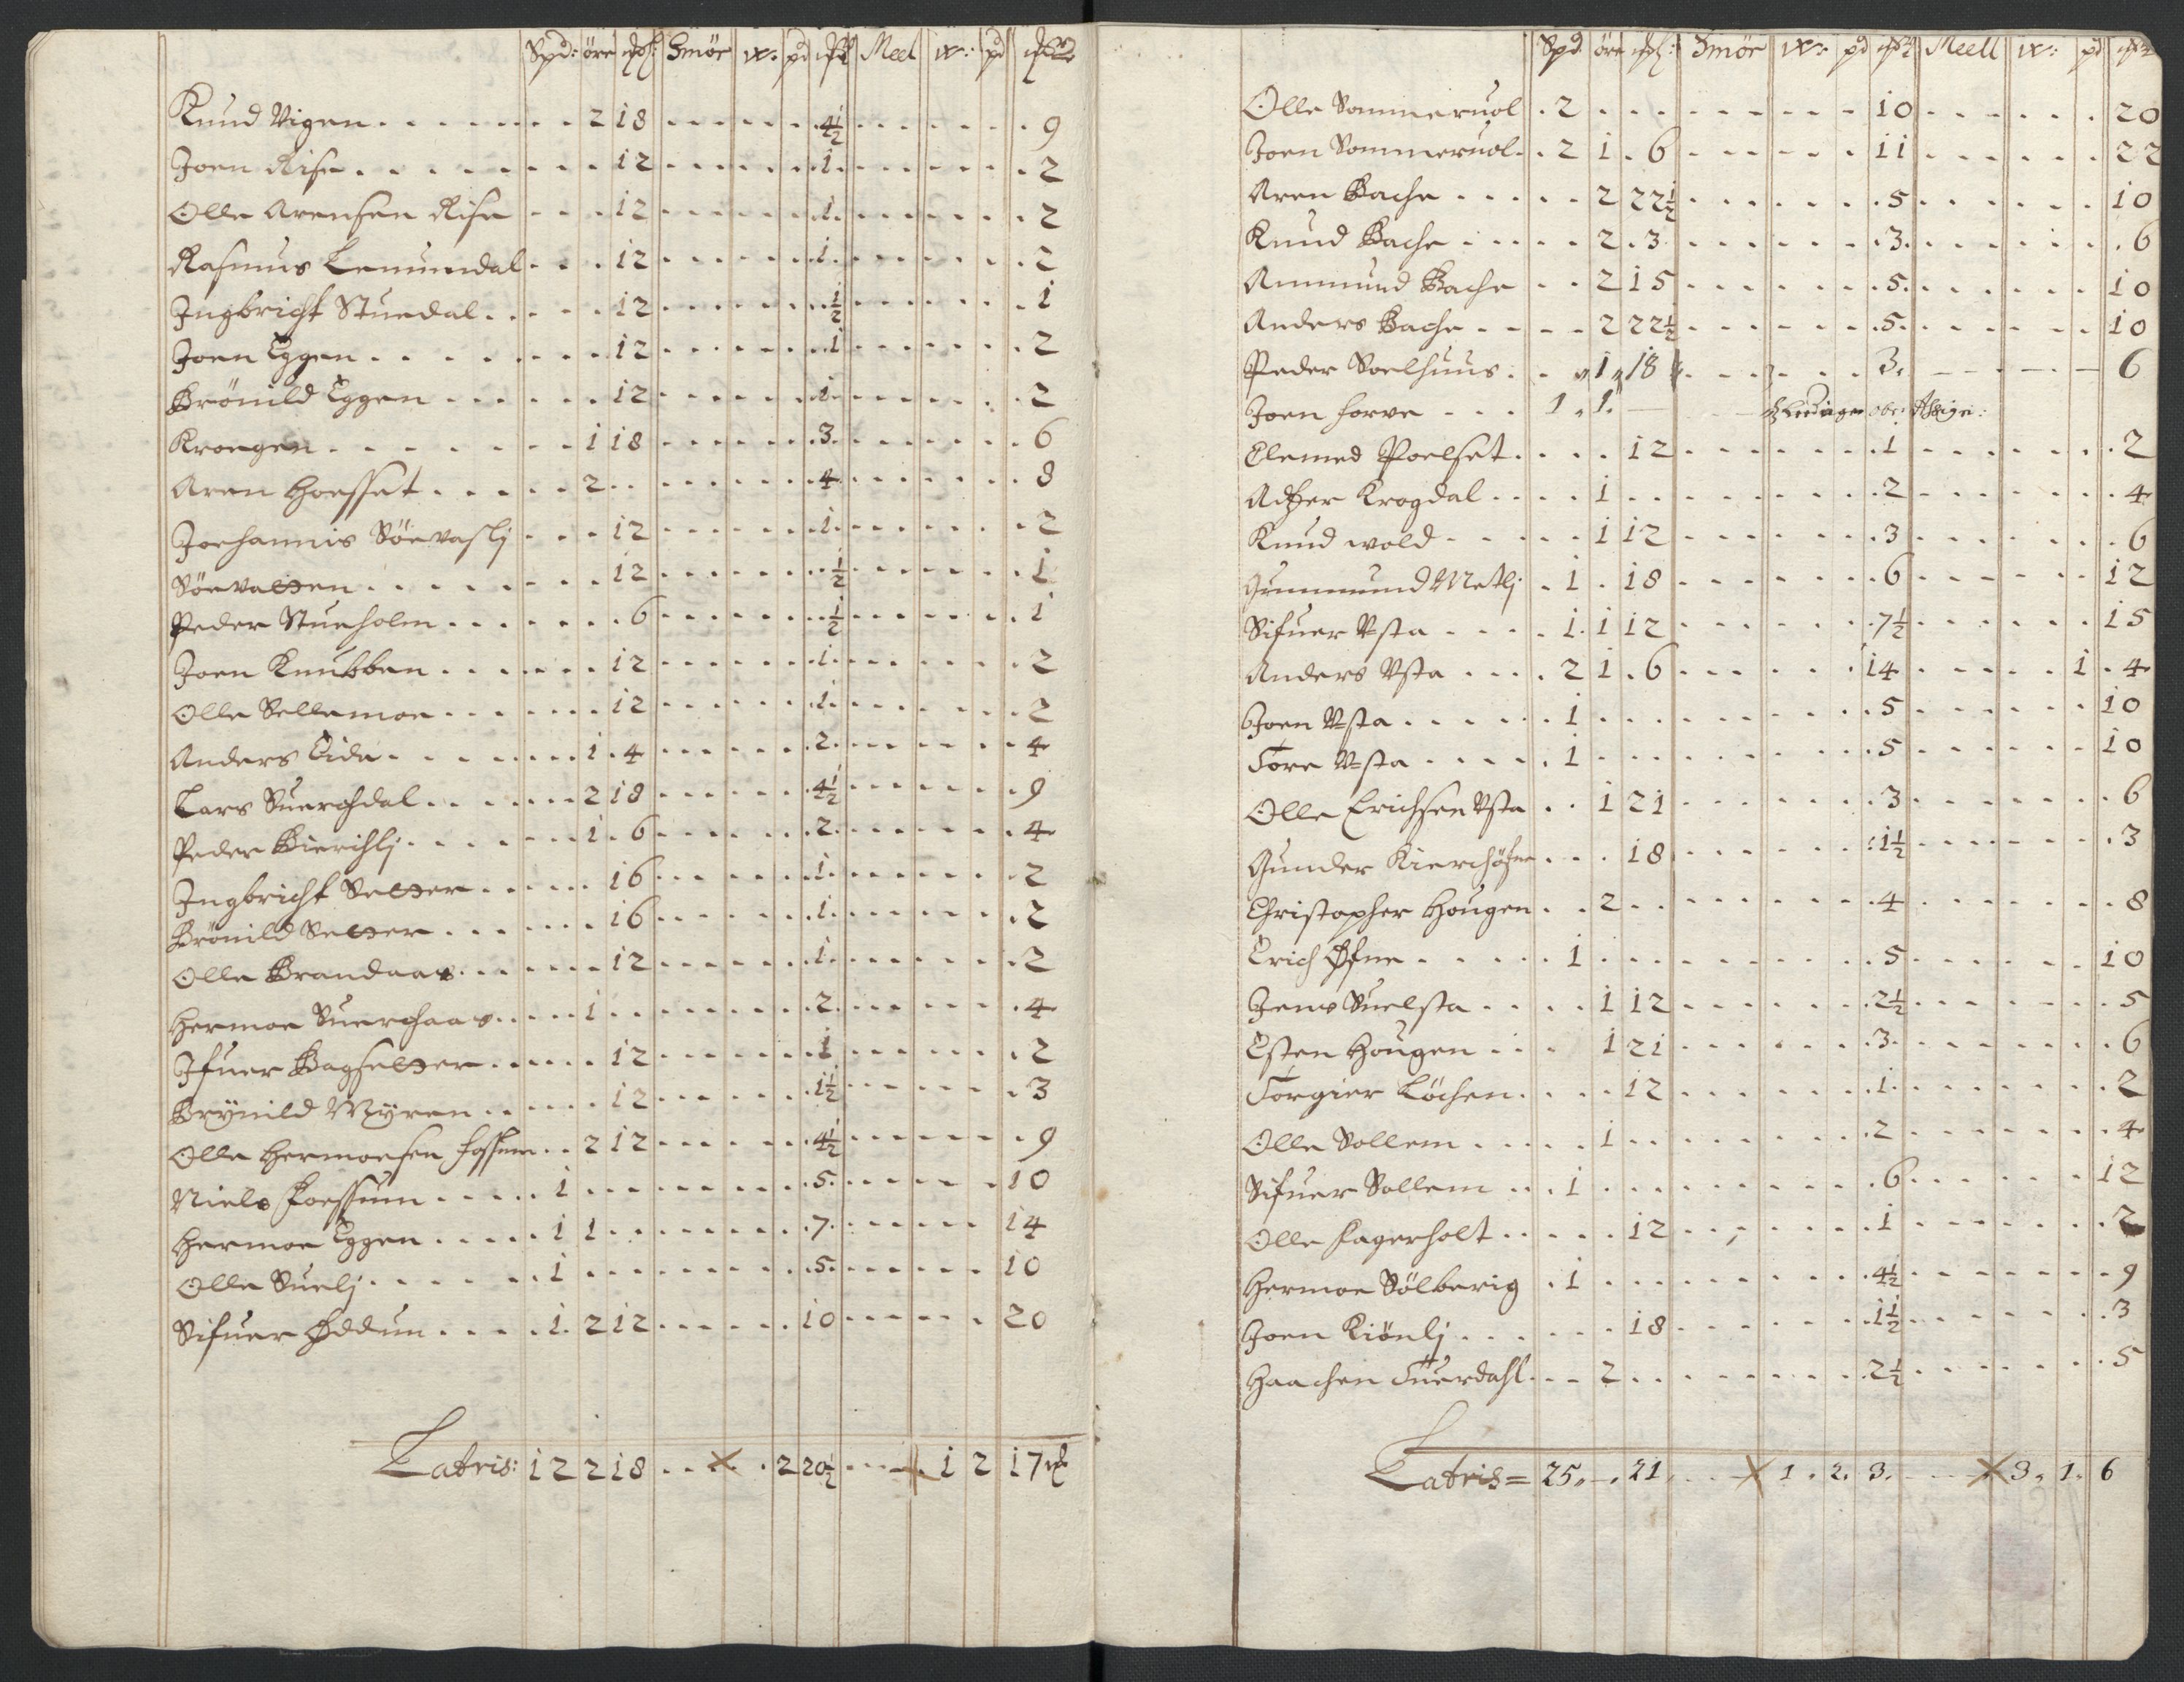 Spd: öre Smör w: pd Meel w: pd
Knud Vigen 2 18 4½ 9
Joen Rise 12 1 2
Olle Arensen Rise 12 1 2
Rasmus Lemundal 12 1 2
Ingbricht Stuedal 12 ½ 1
Joen Eggen 12 1 2
Brönild Eggen 12 1 2
Kroegen 1 18 3 6
Aren Hoesset 2 4 8
Joehannis Söevaslj 12 1 2
Söevatten 12 ½ 1
Peder Stueholm 6 ½ 1
Joen Knubben 12 1 2
Olle Sellemoe 12 1 2
Anders Eide 1 4 2 4
Lars Suerchdal 2 18 4½ 9
Peder Bierchlj 1 6 2 4
Ingbricht Setter 16 1 2
Brönild Setter 16 1 2
Olle Brandaas 12 1 2
Hermoe Suerchaas 1 2 4
Ifuer Bagsetter 12 1 2
Brÿnild Mÿren 12 1½ 3
Olle Hermoesen fossum 2 12 4½ 9
Niels Foessum 1 5 10
Hermoe Eggen 1 1 7 14
Olle Suelj 1 5 10
Sifuer Öddun 1 2 12 10 20
Latris: 12 2 18 2 20½ 1 2 17
Spd öre Smör w: pd Meell w: pd
Olle Sommeruol 2 10 20
Joen Sommeruol 2 1 6 11 22
Aren Bache 2 22½ 5 10
Knud Bache 2 3 3 6
Ammund Bache 2 15 5 10
Anders Bache 2 22½ 5 10
Peder Soelhuus 1 18 3 6
Joen forve 1 1
Clemed Poelset 12 1 2
Adzer Krogdal 1 2 4
Knud wold 1 12 3 6
Gunmund Metlj 1 18 6 12
Sifuer Vsta 1 1 12 7½ 15
Anders Vsta 2 1 6 14 1 4
Joen Vsta 1 5 10
Tore Vsta 1 5 10
Olle Erichsen Vsta 1 21 3 6
Gunder Kierchöfne 18 1½ 3
Christopher Hougen 2 4 8
Erich Öfne 1 5 10
Jens Suelsta 1 12 2½ 5
Esten Hougen 1 21 3 6
Torgier Löchen 12 1 2
Olle Sollem 1 2 4
Sifuer Sollem 1 6 12
Olle Fagerholt 12 1 2
Hermoe Sölberig 1 4½ 9
Joen Kiönlj 18 1½ 3
Haachen Tuerdahl 2 2½ 5
Latris= 25 21 1 2 3 3 1 6